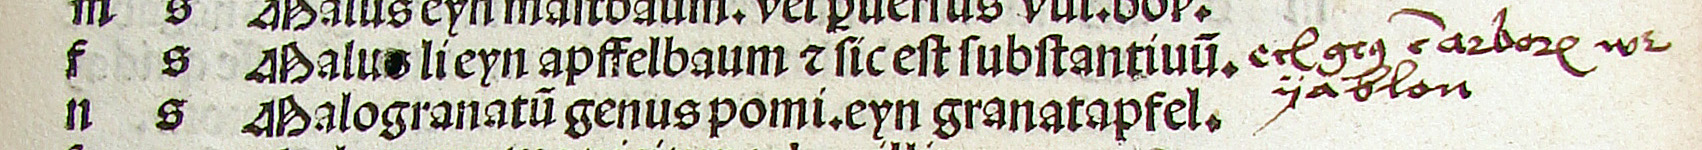 m s Malus eyn mastbaum. vel ꝑuersus vul. boſ.
f s Malus li eyn apffelbaum ⁊ sic est substantiuū. arbor
yablon
n s Malogranatū genus pomi. eyn granatapfel.